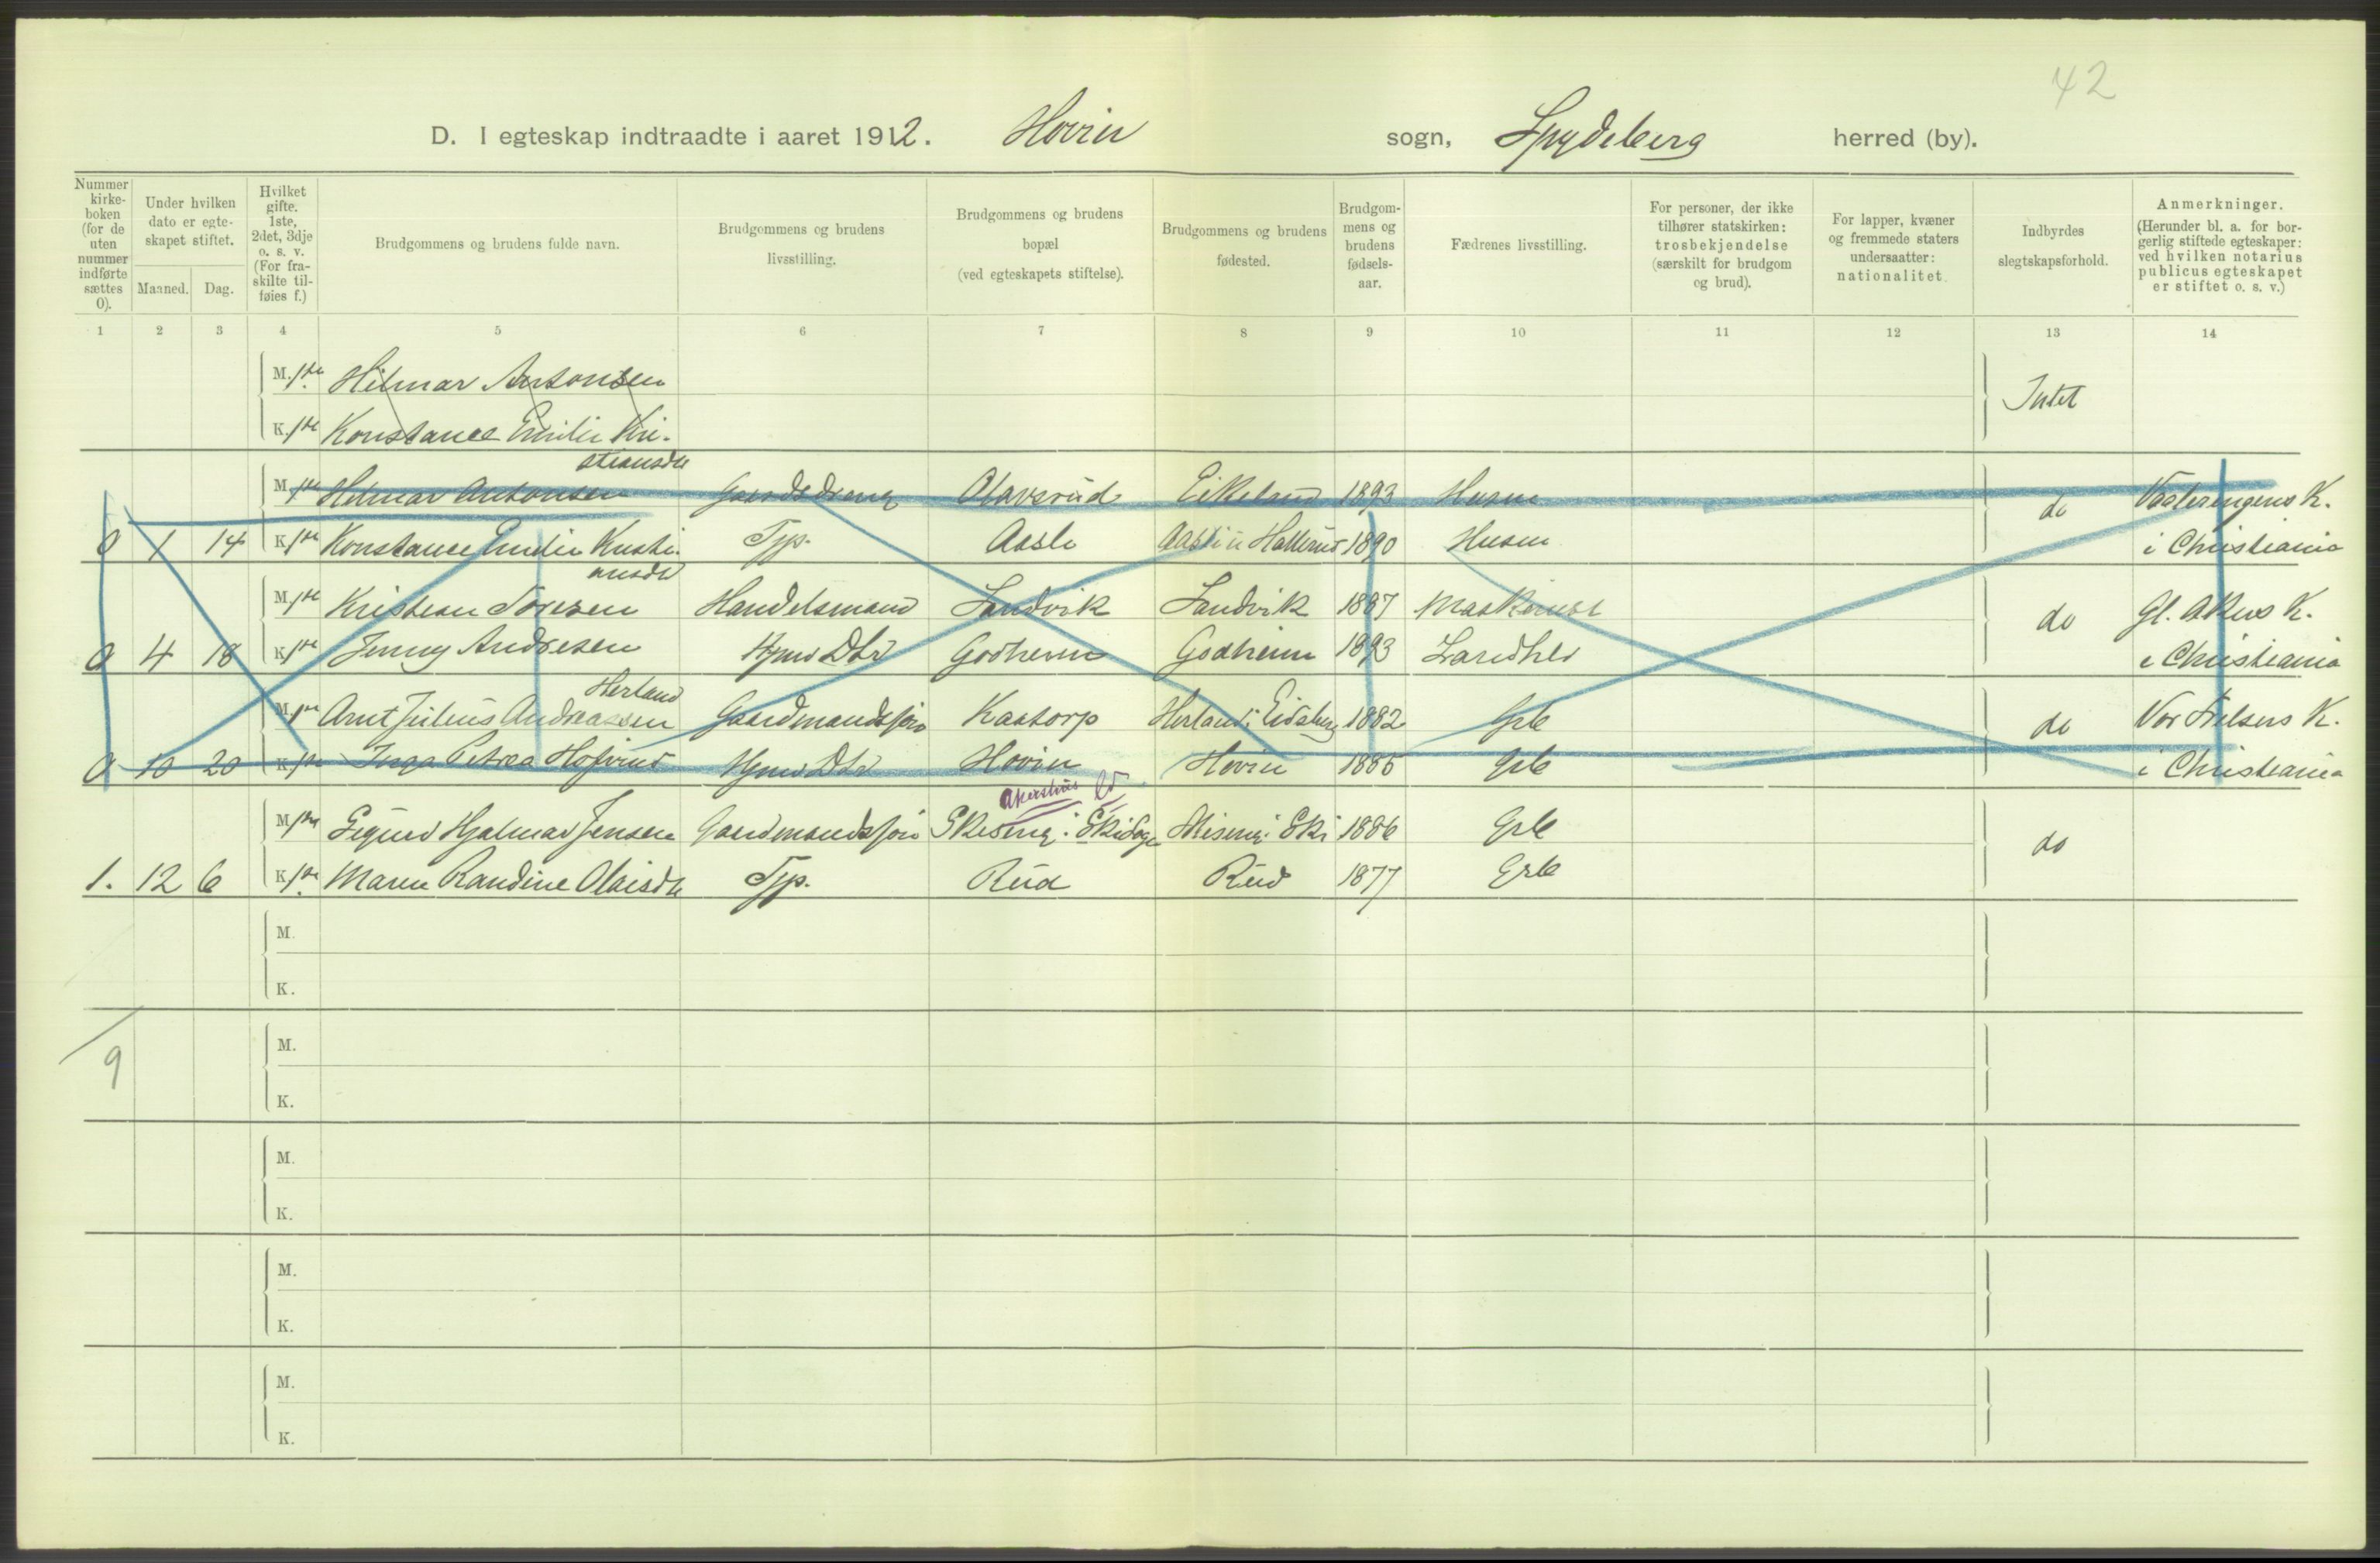 42
D. I egteskap indtraadte i aaret 1912. Hovin sogn, Spydeberg herred (by).
Nummer kirkeboken (for de uten nummer indførte sættes 0).
Under hvilken dato er egteskapet stiftet.
Maaned. Dag.
Hvilket gifte. 1ste, 2det, 3dje o. s. v. (For fraskilte tilføies f.)
Brudgommens og brudens fulde navn.
Brudgommens og brudens livsstilling.
Brudgommens og brudens bopæl (ved egteskapets stiftelse).
Brudgommens og brudens fødested.
Brudgommens og brudens fødselsaar.
Fædrenes livsstilling.
For personer, der ikke tilhører statskirken: trosbekjendelse (særskilt for brudgom og brud).
For lapper, kvæner og fremmede staters undersaatter: nationalitet
Indbyrdes slegtskapsforhold.
Anmerkninger. (Herunder bl. a. for borgerlig stiftede egteskaper: ved hvilken notarius publicus egteskapet er stiftet o. s. v.)
1 2 3 4 5 6 7 8 9 10 11 12 13 14
M. 1ste Hilmar Antonsen Intet
K. 1ste Konstance Emilie Kri-
stiansdtr
M. 1ste Hilmar Antonsen Gaardsdreng Olavsrud Eikeland 1893 Husm do Vaaleringens K.
0 1 14 K. 1ste Konstance Emilie Kristi- Tjp. Aasli Aasli i Hallerud 1890 Husm i Christiania
ansdtr
M. 1ste Kristian Toresen Handelsmand Sandvik Sandvik 1887 Maskinist do Gl. Akers K.
0 4 18 K. 1ste Jenny Andresen Hjmv Dtr Godheim Godheim 1893 Landhdl i Christiania
Herland
M. 1ste Arnt Julius Andreassen Gaardmandssøn Kaatorp Herland i Eidsberg 1882 Grb do Vor Frelsers K.
0 10 20 K. 1ste Inga Petrea Hovin Hjmv Dtr Hovin Hovin 1885 Grb i Christiania
Akershus
M. 1ste Sigurd Hjalmar Jensen Gaardmandssøn i Ski Sogn i Ski 1886 Grb do
1. 12 6 K. 1ste Maren Randine Olaisdtr Tjp. Rud Rud 1877 Grb
M.
K.
M.
9
K.
M.
K.
M.
K.
M.
K.